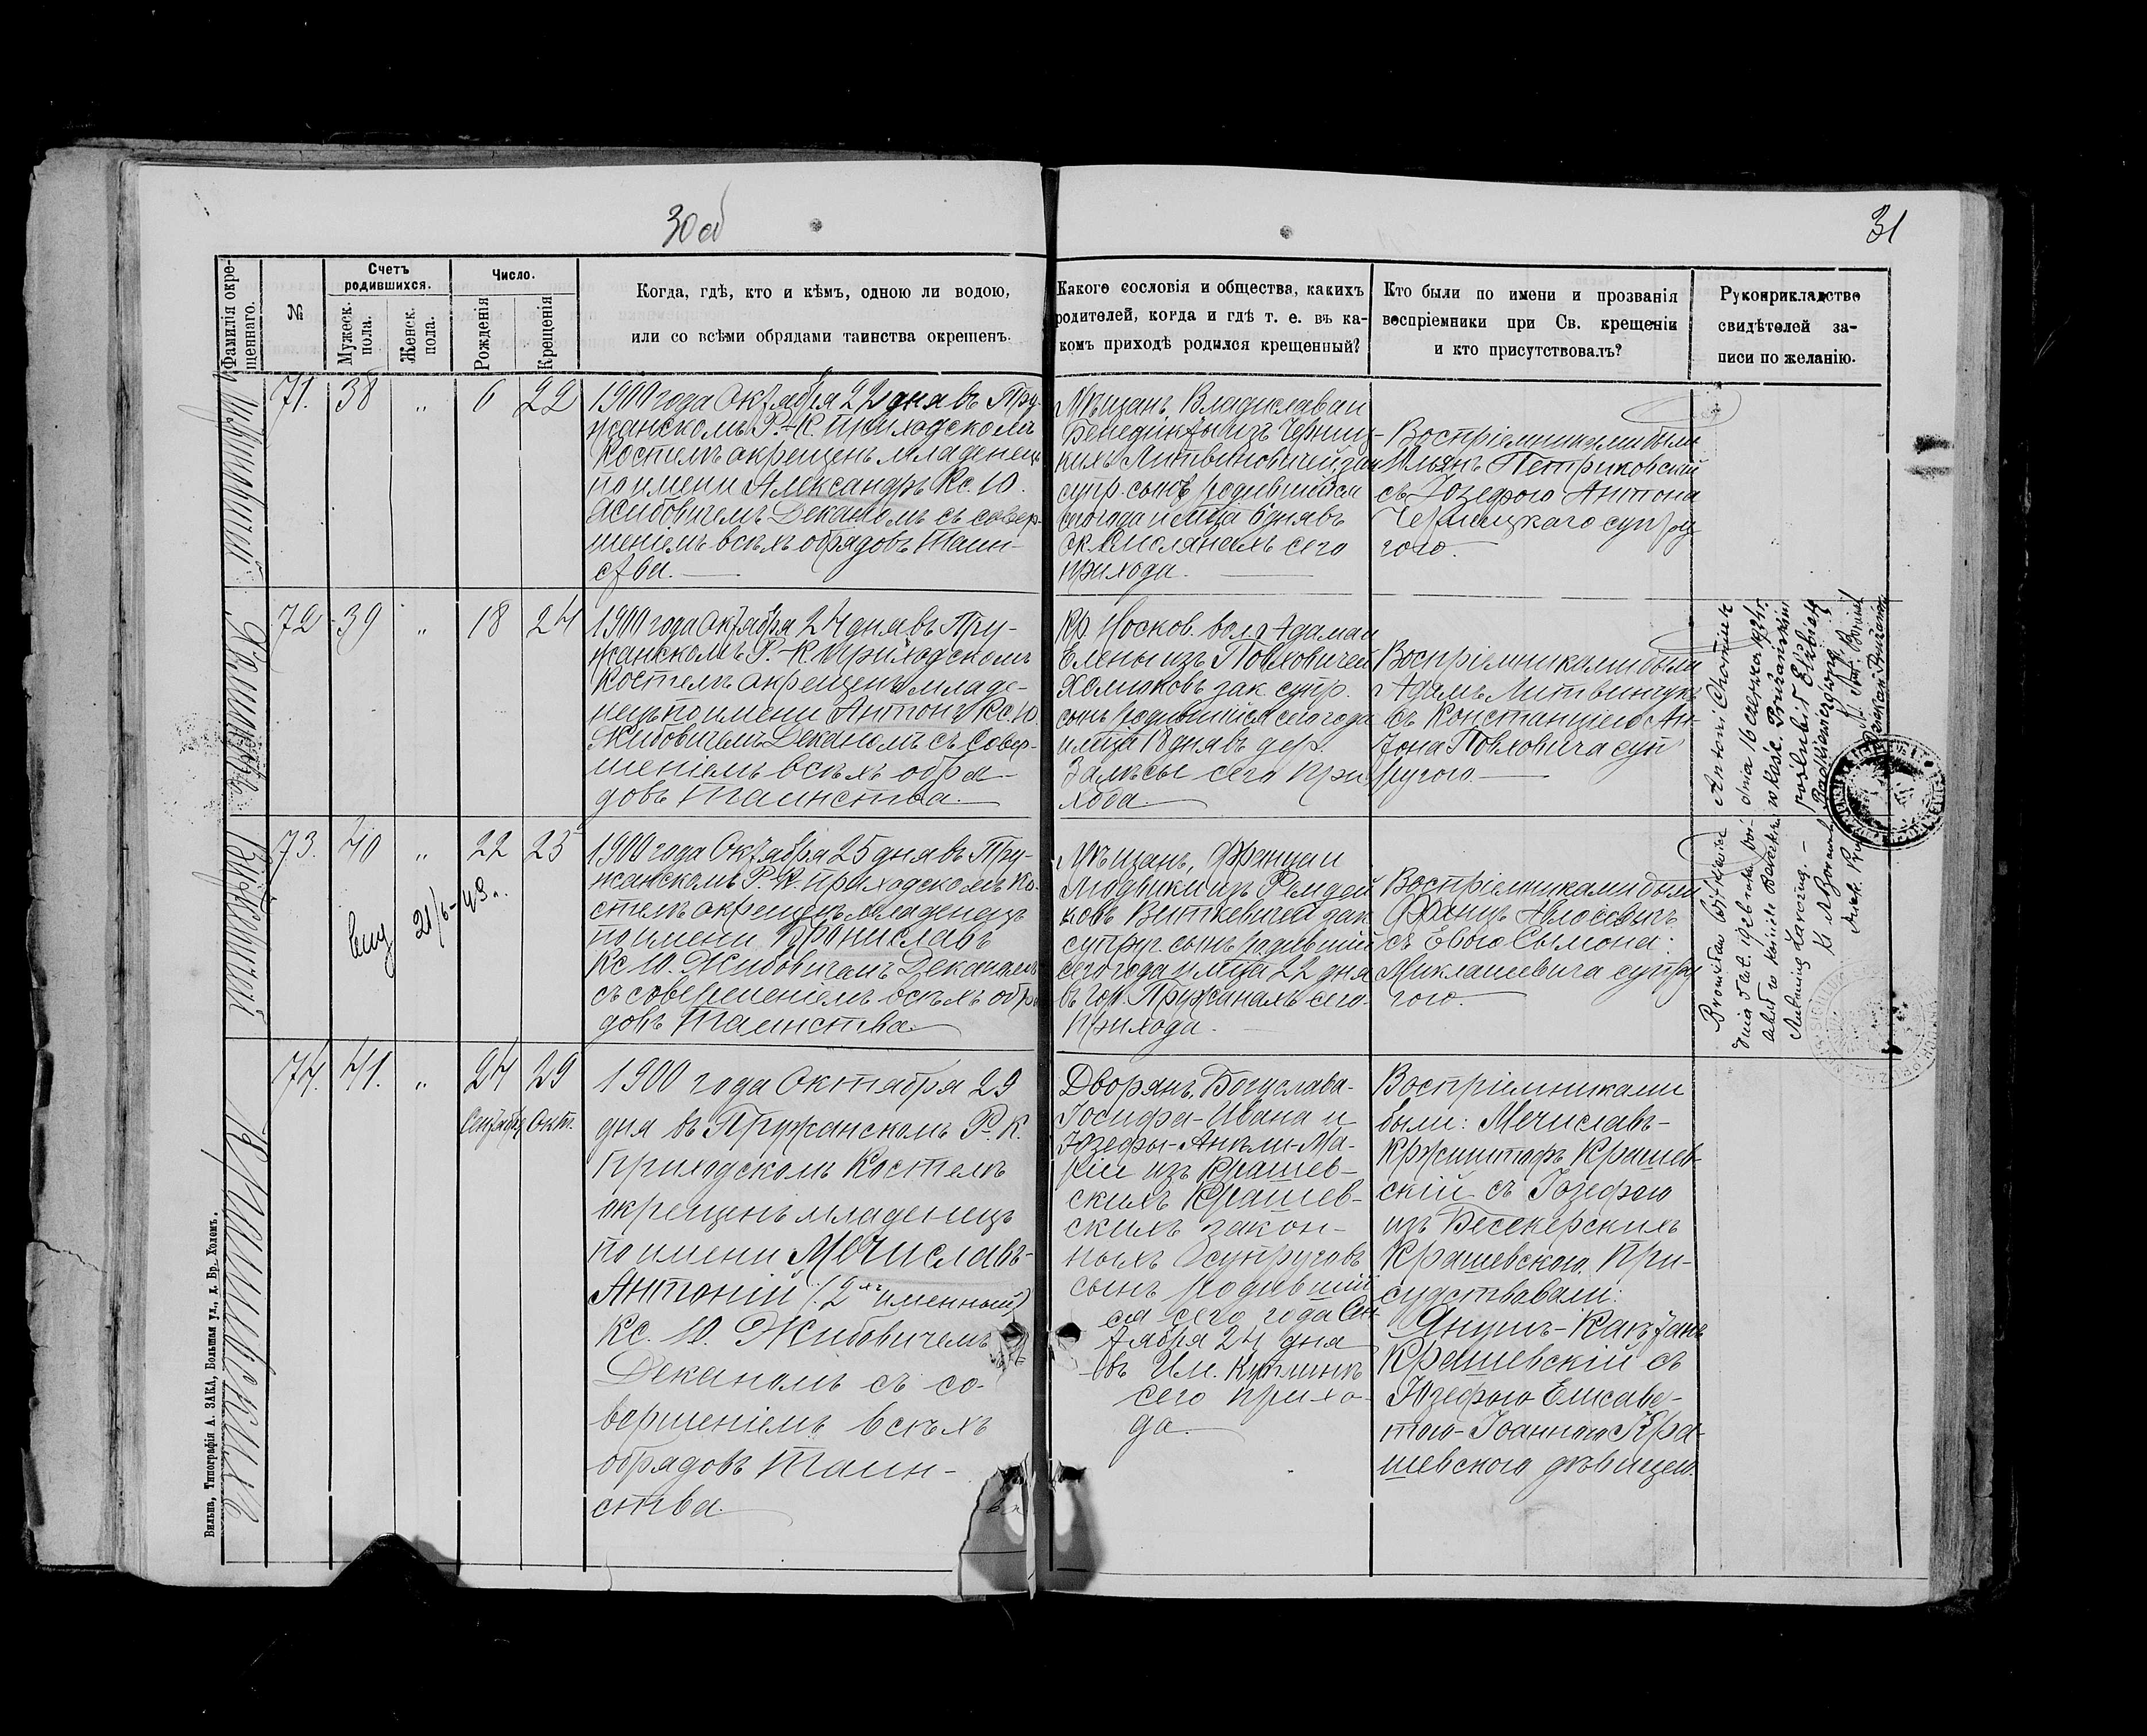 30об
31
Фамилія окре-
щеннаго.
№
Счетъ
родившихся.
Мужеск.
пола.
Женск.
пола.
Число.
Рожденія
Крещенія
Когда, гдѣ, кто и кѣмъ, одною ли водою,
или со всѣми обрядами таинства окрещенъ.
Какого сословія и общества, какихъ
родителей, когда и гдѣ т. е. въ ка-
комъ приходѣ родился крещенный?
Кто были по имени и прозванія
воспріемники при Св. крещеніи
и кто присутствовалъ?
Рукоприкладство
свидѣтелей за-
писи по желанію.
71. 38 „ 6 22
1900 года Октября 22 дня въ Пру-
жанскомъ Р.-К. приходскомъ
Костелѣ окрещенъ младенецъ
по имени Александръ Кс. Ю.
Жибовичемъ Деканомъ съ совер-
шеніемъ всѣхъ обрядовъ Таин-
ства.
Мѣщанъ, Владислава и
Бенедикты изъ Черниц-
кихъ Литвиновичей, зак
супр. сынъ, родившійся
сего года и м-ца 6 дня въ
ок. Смолянахъ сего
прихода.
Воспріемниками были
Юліянъ Петриковскій
съ Юзефою Антона
Черницкаго супру
гою.
Хомиковъ
72 39 „ 18 24
1900 года Октября 24 дня въ Пру-
жанскомъ Р.-К. приходскомъ
Костелѣ окрещенъ младе-
нецъ по имени Антонъ Кс. Ю.
Жибовичемъ Деканомъ съ совер-
шеніемъ всѣхъ обря-
довъ Таинства.
Кр. Носков. вол. Адама и
Елены изъ Павловичей
Хомиковъ зак. супр.
сынъ родившійся сего года
и м-ца 18 дня въ дер.
Залѣсы сего при
хода.
Воспріемниками были
Адамъ Литвинчукъ
съ Констанціею Ан-
тона Павловича суп
ругою
Antoni Chomik
dnia 16 czerwca 1924 r.
Pružańskim
poślubił Elżbietę
Виткевичей
73. 40 „ 22 25
21/6-43
1900 года Октября 25 дня въ Пру-
жанскомъ Р. К. приходскомъ Ко-
стелѣ окрещенъ младенецъ
по имени Брониславъ
Кс. Ю. Жибовичемъ Деканомъ
съ совершеніемъ всѣхъ обря
довъ Таинства.
Мѣщанъ, Франца и
Людвики изъ
Виткевичей зак
супруг. сынъ родившій
сего года и м-ца 22 дня
въ гор. Пружанахъ сего-
прихода.
Воспріемниками были
Францъ
съ Евою Сымона
Миклашевича супру
гою.
Bronisław Witkiewicz
Antoniną
Крашевскихъ
74. 41. „ 24 29
Сентября Окт.
1900 года Октября 29
дня въ Пружанскомъ Р. К.
Приходскомъ Костелѣ
окрещенъ младенецъ
по имени Мечиславъ-
Антоній (2хъ именный)
Кс. Ю. Жибовичемъ
Деканомъ съ со-
вершеніемъ всѣхъ
обрядовъ Таин-
ства.
Дворянъ, Богуслава-
Іосифа-Ивана и
Юзефы-Анели-Ма-
ріи изъ Крашев-
скихъ Крашев-
скихъ закон-
ныхъ супруговъ
сынъ родившій
ся сего года Сен-
тября 24 дня
въ Им. Куплинѣ
сего прихо-
да.
Воспріемниками
были: Мечиславъ-
Кржиштофъ Крашев
скій съ Іозефою
изъ Бесекерскихъ
Крашевскою. При-
судствовали:
Янушъ-Каэтанъ
Крашевскій съ
Юзефою Елисаве-
тою-Іоанною Кра-
шевскою дѣвицею.
Вильна, Типографія А. ЗАКА, Большая ул., д. Бр. Холемъ.